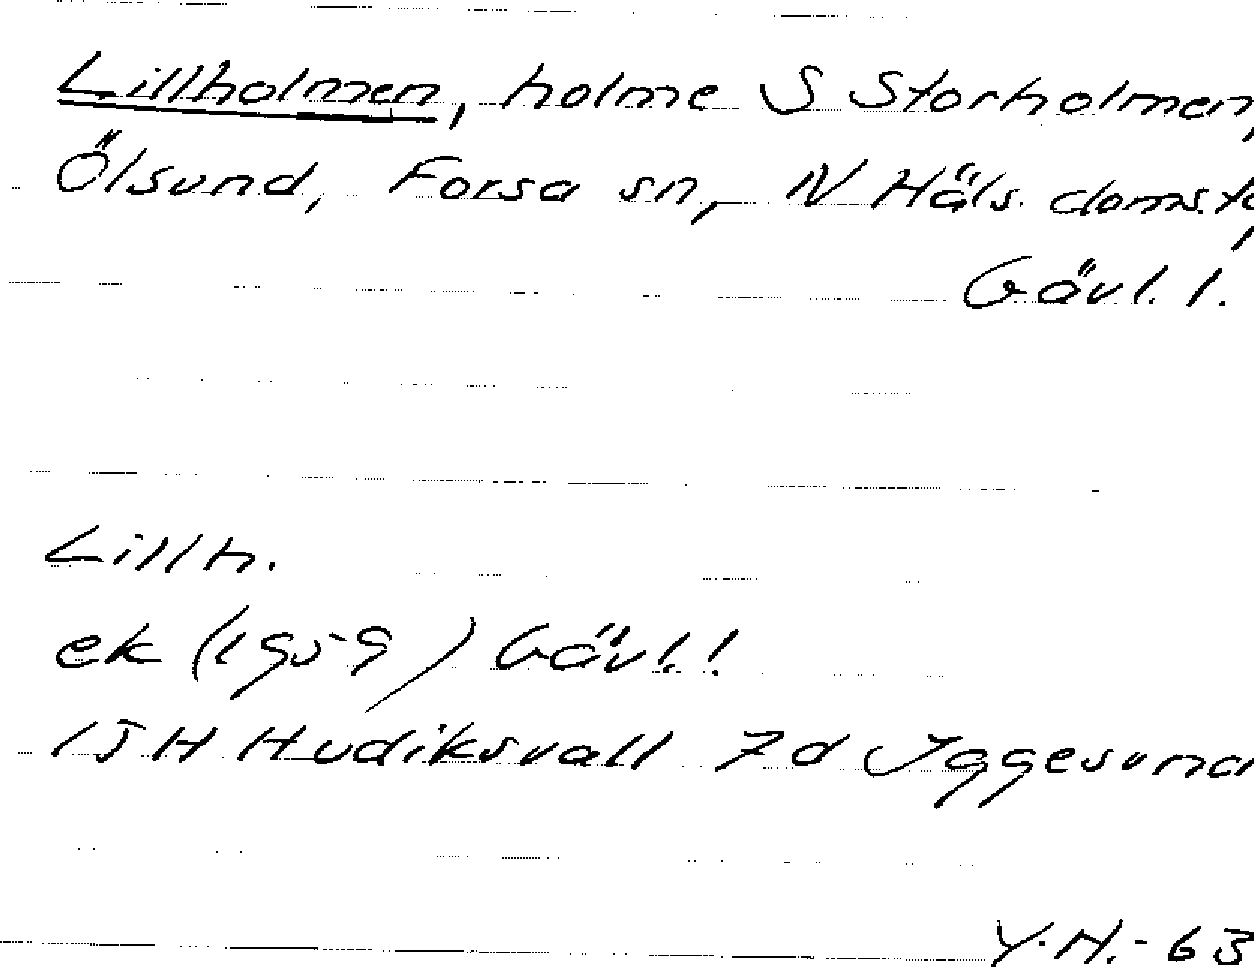 Lillholmen, holme S Storholmen,
Ölsund, Forsa sn, N Häls. doms.
Gävl. l.
Lillh.
ek (1959) Gävl. l.
15H Hudiksvall 7d Iggesund
Y.H.-63